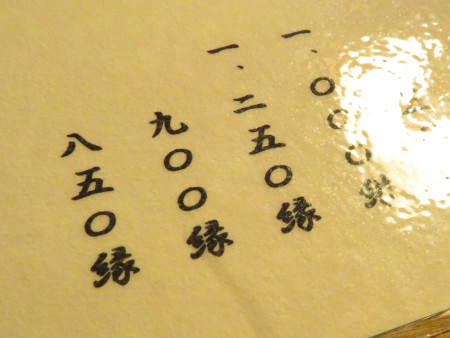 一、〇〇〇
一、二五〇縁
九〇〇縁
八五〇縁